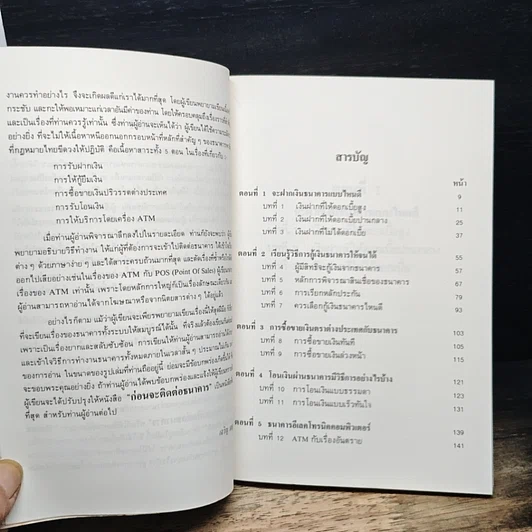 งานควรทำอย่างไร จึงจะเกิดผลดีแก่เราได้มากที่สุด โดยผู้เขียนพยายามเขียนเนื้อ
กระชับ และกะให้พอเหมาะแก่เวลาอันมีค่าของท่าน โดยให้ครอบคลุมถึง
และเป็นเรื่องที่ท่านควรรู้เท่านั้น ซึ่งท่านผู้อ่านจะเห็นได้ว่า ผู้เขียนได้ใช้ความ
อย่างยิ่ง ที่จะไม่ให้เนื้อหาหนีออกนอกกรอบหน้าที่หลักที่สำคัญ ๆ ของธนาคาร
ที่กฎหมายไทยขีดวงให้ปฏิบัติ คือเนื้อหาสาระทั้ง 5 ตอน ในเรื่องที่เกี่ยวกับ
การรับฝากเงิน
การให้กู้ยืมเงิน
การซื้อขายเงินปริวรรตต่างประเทศ
การรับโอนเงิน
การให้บริการโดยเครื่อง ATM
เมื่อท่านผู้อ่านพิจารณาลึกลงไปในรายละเอียด ท่านก็ยังจะพบว่า ผู้
พยายามอธิบายวิธีทำงาน ให้แก่ผู้ที่ต้องการจะเข้าไปติดต่อธนาคาร ได้เข้าใจ
ต่าง ๆ ด้วยภาษาง่าย ๆ และได้สาระครบถ้วนมากที่สุด และตัดเรื่องที่
ออกไปเสียอย่างเช่นในเรื่องของ ATM กับ POS (Point Of Sales) ผู้เขียน
เรื่องของ ATM เท่านั้น เพราะโดยหลักการผู้ที่เป็นเรื่องลักษณะเดียวกัน
ผู้อ่านสามารถหาอ่านได้จากโฆษณาหรือจากนิตยสารต่าง ๆ ได้อยู่แล้ว
อย่างไรก็ตาม แม้ว่าผู้เขียนจะเพียรพยายามเขียนเรื่องนี้
ที่จะเขียนเรื่องของธนาคารทั้งระบบให้สมบูรณ์ได้นั้น
เพราะเป็นเรื่องยากและสลับซับซ้อน การเขียนให้ท่านผู้อ่านสามารถอ่าน
และเข้าใจวิธีการทำงานธนาคารทั้งหมดภายในเวลาสั้น ๆ ประมาณไม่เกิน
ของการอ่าน ในขนาดของรูปเล่มที่ท่านถืออยู่นี้ ย่อมจะมีข้อบกพร่อง
จะขอบพระคุณอย่างยิ่ง ถ้าท่านผู้อ่านได้พบข้อบกพร่องและแจ้งให้ผู้เขียน
ผู้เขียนจะได้ปรับปรุงให้หนังสือ "ก่อนจะติดต่อธนาคาร" เป็นหนังสือ
ที่สุด สำหรับท่านผู้อ่านต่อไป
สารบัญ
หน้า
ตอนที่ 1 จะฝากเงินธนาคารแบบไหนดี 9
บทที่ 1 เงินฝากที่ให้ดอกเบี้ยสูง 11
บทที่ 2 เงินฝากที่ให้ดอกเบี้ยปานกลาง 25
บทที่ 3 เงินฝากที่ไม่ได้ดอกเบี้ย 37
ตอนที่ 2 เรียนรู้วิธีการกู้เงินธนาคารให้จนได้ 55
บทที่ 4 ผู้มีสิทธิจะกู้เงินจากธนาคาร 57
บทที่ 5 หลักการพิจารณาสินเชื่อของธนาคาร 65
บทที่ 6 การเรียกหลักประกัน 77
บทที่ 7 ควรเลือกกู้เงินธนาคารไหนดี 87
ตอนที่ 3 การซื้อขายเงินตราต่างประเทศกับธนาคาร 103
บทที่ 8 การซื้อขายเงินทันที 105
บทที่ 9 การซื้อขายเงินล่วงหน้า 115
ตอนที่ 4 โอนเงินผ่านธนาคารมีวิธีการอย่างไรบ้าง 121
บทที่ 10 การโอนเงินแบบธรรมดา 123
บทที่ 11 การโอนเงินแบบเร็วทันใจ 131
ตอนที่ 5 ธนาคารอีเลคโทรนิคคอมพิวเตอร์ 139
บทที่ 12 ATM กับเรื่องอันตราย 141